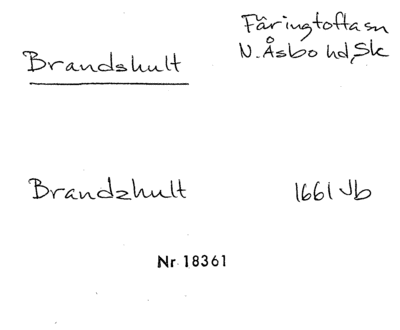 Fåringtofta sn
N. Åsbo hd, Sk
Brandshult
Brandzhult 1661 Jb
Nr 18361